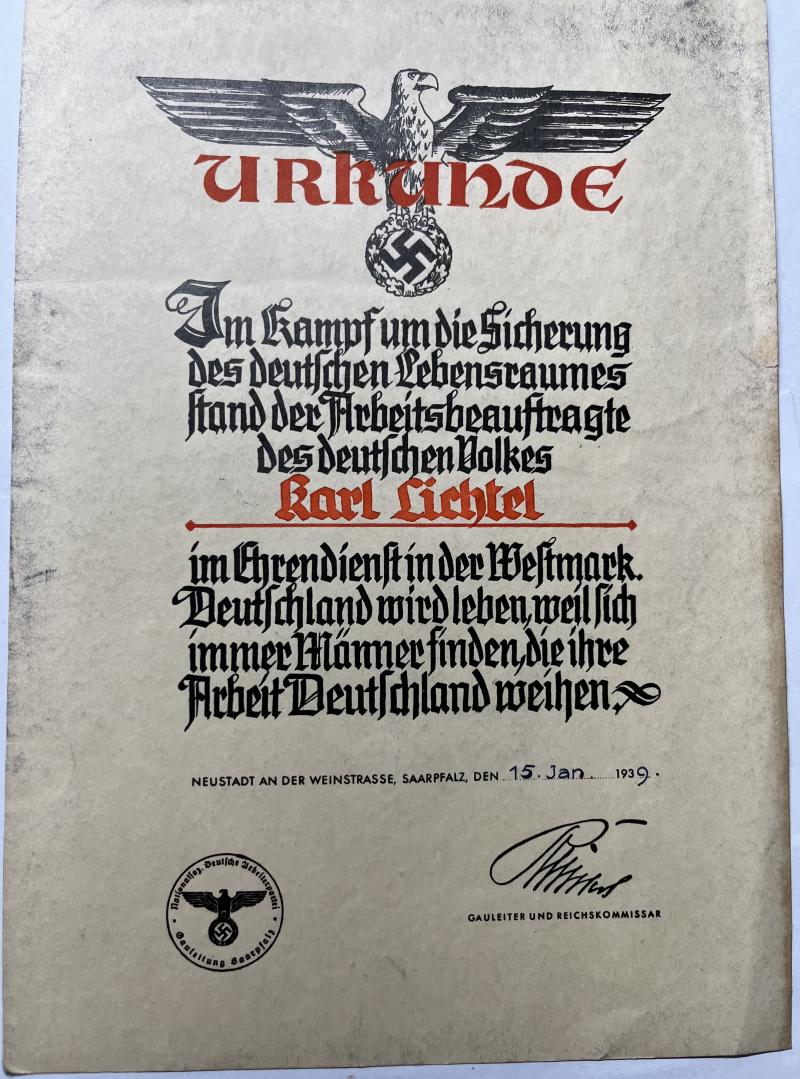 URKUNDE
Im Kampf um die Sicherung
des deutschen Lebensraumes
stand der Arbeitsbeauftragte
des deutschen Volkes
Karl Lichtel
im Ehrendienst in der Westmark.
Deutschland wird leben, weil sich
immer Männer finden, die ihre
Arbeit Deutschland weihen.
NEUSTADT AN DER WEINSTRASSE, SAARPFALZ, DEN 15. Jan. 1939.
GAULEITER UND REICHSKOMMISSAR
Nationalsoz. Deutsche Arbeiterpartei
Gauleitung Saarpfalz